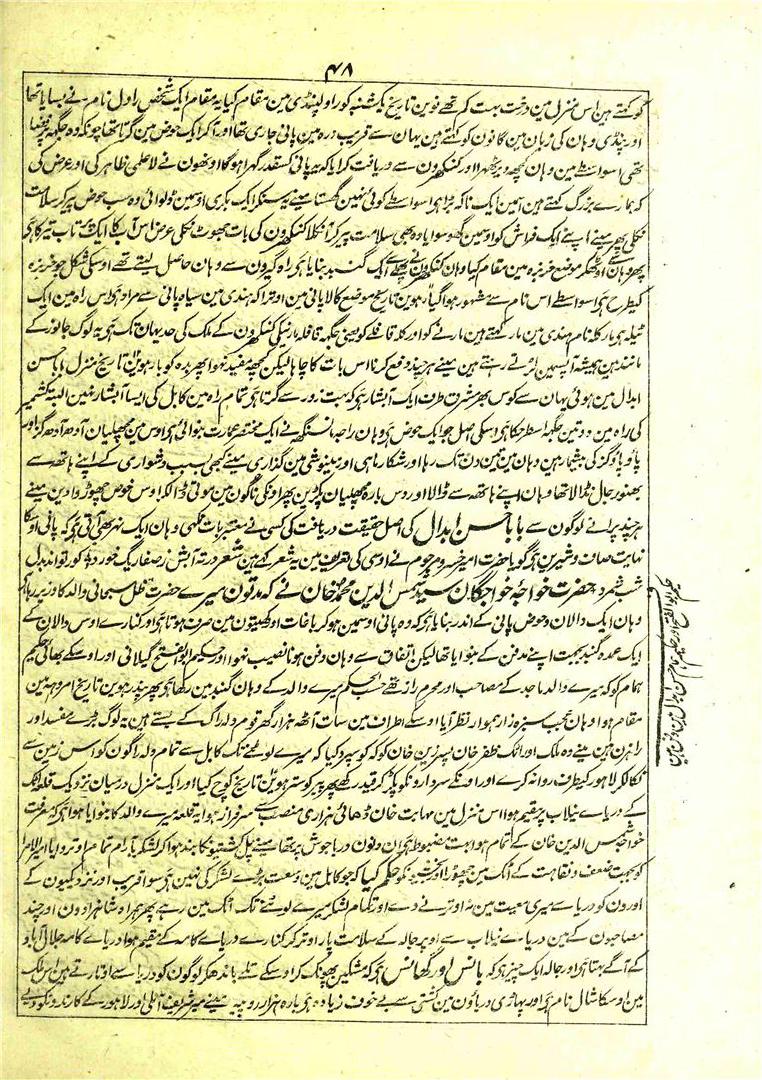 ۴۸
کو کہتے ہین اس منزل مین درخت بہت کم تھے نوین تاریخ یکشنبہ کو راولپنڈی مین مقام کیا یہ مقام ایک شخص راول نام نے بسایا تھا
اور پنڈی وہان کی زبان مین گانون کو کہتے ہین یہان سے قریب درہ مین پانی جاری تھا اور آکر ایک حوض مین گرتا تھا چونکہ وہ جگہ پرفضا
تھی اسواسطے مین وہان کچھ دیر ٹھہرا اور گنکھرون سے دریافت کرایا کہ یہ پانی کسقدر گہرا ہوگا اونھون نے لاعلمی ظاہر کی اور عرض کی
کہ ہمارے بزرگ کہتے ہین اسمین ایک ناکہ بڑا ہی اسواسطے کوئی نہین گھستا مینے یہ سنکر ایک بکری اوسمین ڈلوائی وہ سب حوض پیر کر سلامت
نکلی پھر مینے اپنے ایک فراش کو اوسمین گھسوایا وہ بھی سلامت پیر کر نکلا گنکھرون کی بات جھوٹ نکلی عرض اس آب کا ایک تیر پرتاب تیر کا ہی
پھر وہان سے اوٹھکر موضع خربزہ مین مقام کیا وہان گنکھرون نے پہلے ایک گنبد بنایا ہی راہ گیرون سے وہان حاصل لیتے تھے اوسکی شکل جو خربزہ
کیطرح ہی اسواسطے اس نام سے مشہور ہوا گیارہوین تاریخ موضع کالا پانی مین اوترا کہ ہندی مین سیاہ پانی سے مراد ہی اس راہ مین ایک
ٹیلہ ہی مارکلہ نام ہندی مین مار کہتے ہین مارنے کو اور کلہ قافلے کو یعنی جگہہ قافلہ مارنیکی گنکھرون کے ملک کی حد یہان تک ہی یہ لوگ جانور کے
مانند ہین ہمیشہ آپسمین لڑتے رہتے ہین مینے ہرچند دفع کرنا اس بات کا چاہا لیکن کچھہ مفید نہوا پھر پیر کو بارہوین تاریخ منزل بابا حسن
ابدال مین ہوئی یہان سے کوس بھر مشرق طرف ایک آبشار ہی کہ بہت زور سے گرتا ہی تمام راہ مین کابل کی ایسا آبشار نہین البتہ کشمیر
کی راہ مین دو تین جگہہ اسطرحکا ہی اسکی اصل جو ایک حوض ہی وہان راجہ مانسنگھ نے ایک مختصر عمارت بنوائی ہی اوس مین مچھلیان آدھ آدھ گز اور
پاؤ پاؤ گز کی بیشمار ہین وہان مین تین دن تک رہا اور شکار ماہی اور مینوشی مین گذاری مینے کبھی بسبب دشواری کے اپنے ہاتھ سے
بھنور جال نڈالا تھا وہان اپنے ہاتھ سے ڈالا اور دس بارہ مچھلیان پکڑین پھر اونکی ناکون مین موتی ڈالکر اوس حوض چھوڑوا دین مینے
ہرچند پرانے لوگون سے بابا حسن ابدال کی اصل حقیقت دریافت کی کسی نے معتبر بات نکہی وہان ایک نہر بھی آتی ہی کہ پانی اوسکا
نہایت صاف و شیرین ہی گویا حضرت امیر خسرو مرحوم نے اوسی کی تعریف مین یہ شعر کہے ہین شعر درتہ آبش ز صفا ریگ خورد ٭ کور تواند بدل
شب شمرد ٭ حضرت خواجہ خواجگان سید شمس الدین محمد خان نے کہ مدتون میرے حضرت ظل سبحانی والد کا وزیر رہا ہی
وہان ایک دالان و حوض پانی کے اندر بنایا ہی کہ وہ پانی اوسمین ہوکر باغات اور کھیتون مین صرف ہوتا ہی اور کنارے اوس دالان کے
ایک عمدہ گنبد بجہت اپنے مدفن کے بنوایا تھا لیکن اتفاق سے وہان دفن ہونا نصیب نہوا اور حکیم ابوالفتح گیلانی اور اوسکے بھائی حکیم
ہمام کو کہ میرے والد ماجد کے مصاحب اور محرم راز تھے حسب الحکم میرے والد کے وہان گنبد مین رکھا ہی پھر پندرہوین تاریخ امروہہ مین
مقام ہوا وہان عجب سبزہ زار ہموار نظر آیا اوسکے اطراف مین سات آٹھہ ہزار گھر قوم دلہ زاک کے بستے ہین یہ لوگ بڑے مفسد اور
راہزن ہین مینے وہ ملک اور اٹک ظفر خان پسر زین خان کوکہ کو سپرد کیا کہ میرے لوٹنے تک کابل سے تمام دلہ زاکون کو اس زمین سے
نکالکر لاہور کیطرف روانہ کرے اور اونکے سردارونکو پکڑ کر قید رکھے پھر پیر کو سترہوین تاریخ کوچ کیا اور ایک منزل درمیان نزدیک قلعہ اٹک
کے دریاے نیلاب پر مقیم ہوا اس منزل مین مہابت خان ڈھائی ہزاری منصب سے سرفراز ہوا یہ قلعہ میرے والد کا بنوایا ہوا ہی کہ معرفت
خواجہ شمس الدین خان کے تمام ہوا بہت مضبوط ہی ان دنون دریا جوش پر تھا مینے پل کشتیونکا بندھواکر لشکر بآرام تمام اوتروایا امیرالامرا
کو بجہت ضعف و نقاہت کے اٹک مین چھوڑا اور بخشیونکو حکم کیا کہ جو کابل مین وسعت بڑے لشکر کی نہین ہی سوا قریب اور نزدیکیون کے
اورون کو دریا سے میری معیت مین نہ اوترنے دے اور تمام لشکر میرے لوٹنے تک اٹک مین رہے پھر ہمراہ شاہزادون اور چند
مصاحبون کے مین دریاے نیلاب سے اوپر جالہ کے سلامت پار اوتر کر کنارے دریاے کامہ کے مقیم ہوا دریاے کامہ جلال آباد
کے آگے بہتا ہی اور جالہ ایک چیز ہی کہ بانس اور گھانس کی مشکین پھونک کر اوسکے تلے باندھکر لوگون کو دریا سے اوتارتے ہین اس ملک
مین اوسکا شال نام ہی اور پہاڑی دریاؤن مین کشتی سے بے خوف زیادہ ہی بارہ ہزار روپیہ مینے میر شریف آملی اور لاہور کے کارندونکو دیے
حکیم ابوالفتح اور حکیم ہمام حسن ابدال مین دفن ہین